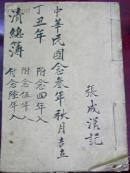 張成漢記
中華民國念叁年秋月吉立
丁丑年
附念四年入
附念伍年入
附念陸年入
清總簿